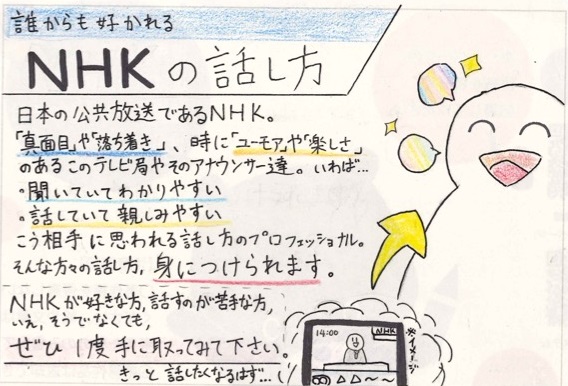 誰からも好かれる
NHKの話し方
日本の公共放送であるNHK。
「真面目」や「落ち着き」、時に「ユーモア」や「楽しさ」
のあるこのテレビ局やそのアナウンサー達。いわば…
・聞いていてわかりやすい
・話していて親しみやすい
こう相手に思われる話し方のプロフェッショナル。
そんな方々の話し方、身につけられます。
NHKが好きな方、話すのが苦手な方、
いえ、そうでなくても、
ぜひ1度手に取ってみて下さい。
きっと話したくなるはず…
14:00
NHK
※イメージ